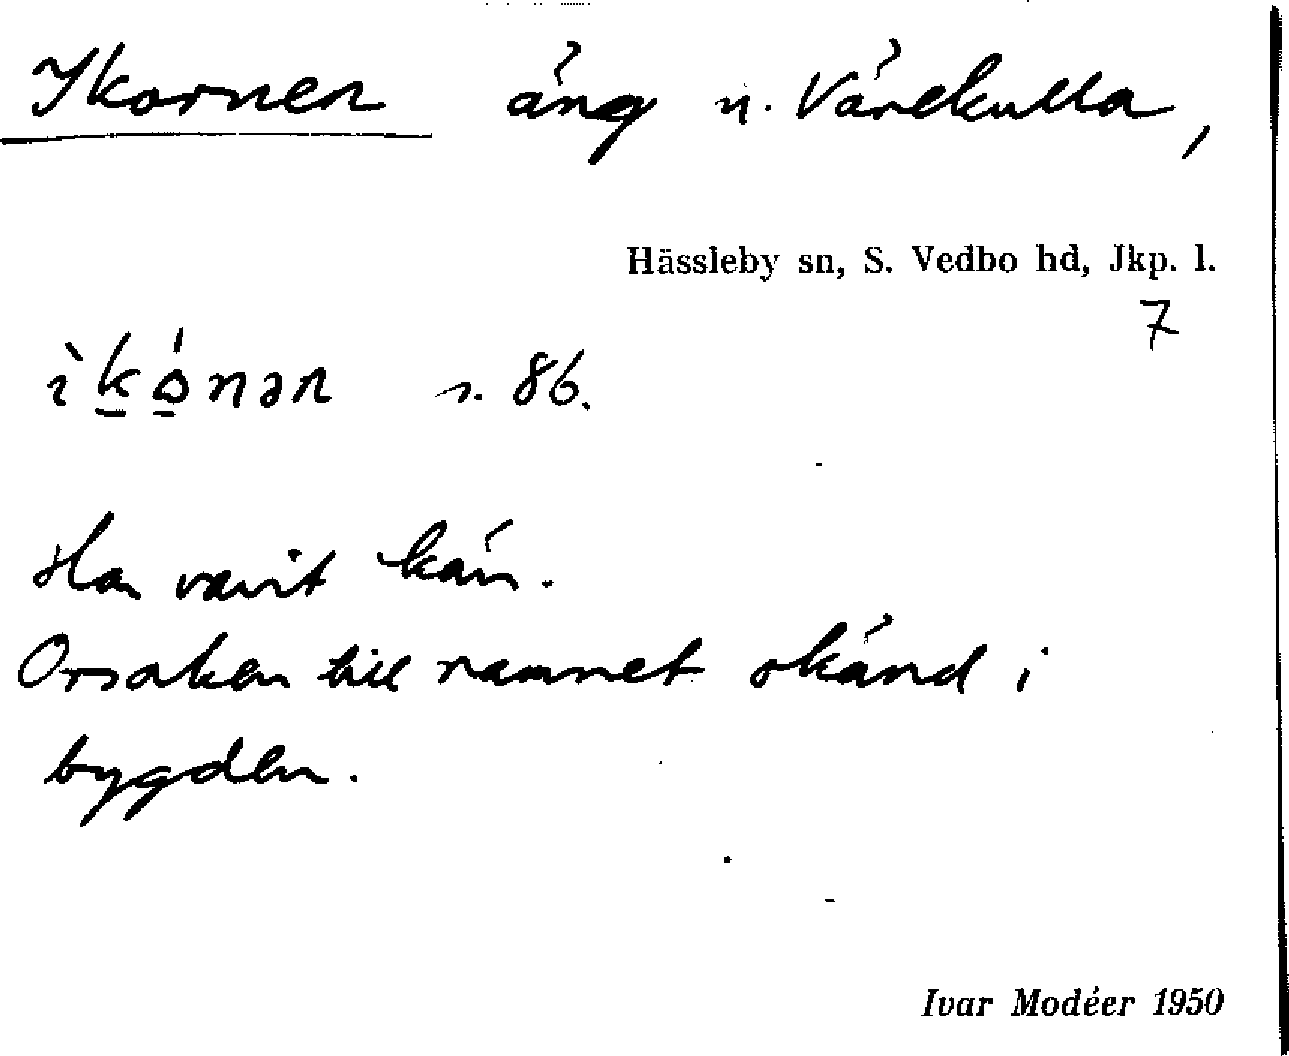 Ikornen äng n. Värekulla,
Hässleby sn, S. Vedbo hd, Jkp. l.
7
ìko̱ńər s. 86.
Har varit kärr.
Orsaken till namnet okänd i
bygden.
Ivar Modéer 1950